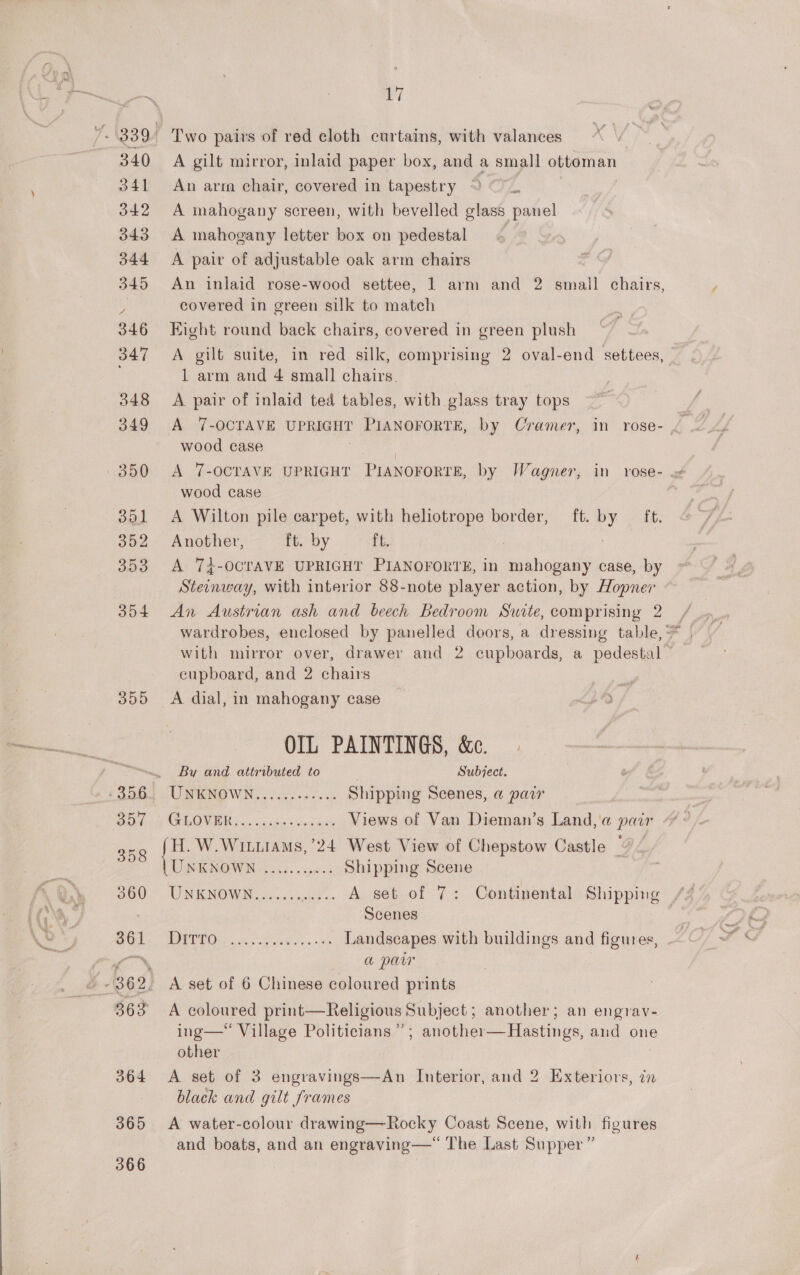 17
339 Two pairs of red cloth curtains, with valances
340 A gilt mirror, inlaid paper box, and a small ottoman
341 An arm chair, covered in tapestry
342 A mahogany screen, with bevelled glass panel
343 A mahogany letter box on pedestal
344 A pair of adjustable oak arm chairs
345 An inlaid rose-wood settee, 1 arm and 2 small chairs,
covered in green silk to match
346 Eight round back chairs, covered in green plush
347 A gilt suite, in red silk, comprising 2 oval-end settees,
1 arm and 4 small chairs.
348 A pair of inlaid tea tables, with glass tray tops
349 A 7-OCTAVE UPRIGHT PIANOFORTE, by Cramer, in rose-
wood case
350 A 7-OCTAVE UPRIGHT PIANOFORTE, by Wagner, in rose-
wood case
351 A Wilton pile carpet, with heliotrope border, ft. by ft.
352 Another, ft. by ft.
353 A 7¼-OCTAVE UPRIGHT PIANOFORTE, in mahogany case, by
Steinway, with interior 88-note player action, by Hopner
354 An Austrian ash and beech Bedroom Suite, comprising 2
wardrobes, enclosed by panelled doors, a dressing table,
with mirror over, drawer and 2 cupboards, a pedestal
cupboard, and 2 chairs
355 A dial, in mahogany case
OIL PAINTINGS, &c.
By and attributed to Subject.
356 UNKNOWN............ Shipping Scenes, a pair
357 GLOVER............... Views of Van Dieman's Land, a pair
358 {H. W. WILLIAMS, '24 West View of Chepstow Castle
{UNKNOWN ............ Shipping Scene
360 UNKNOWN............ A set of 7: Continental Shipping
Scenes
361 DITTO ............... Landscapes with buildings and figures,
a pair
362 A set of 6 Chinese coloured prints
363 A coloured print—Religious Subject; another; an engrav-
ing—“Village Politicians”; another—Hastings, and one
other
364 A set of 3 engravings—An Interior, and 2 Exteriors, in
black and gilt frames
365 A water-colour drawing—Rocky Coast Scene, with figures
and boats, and an engraving—“The Last Supper”
366